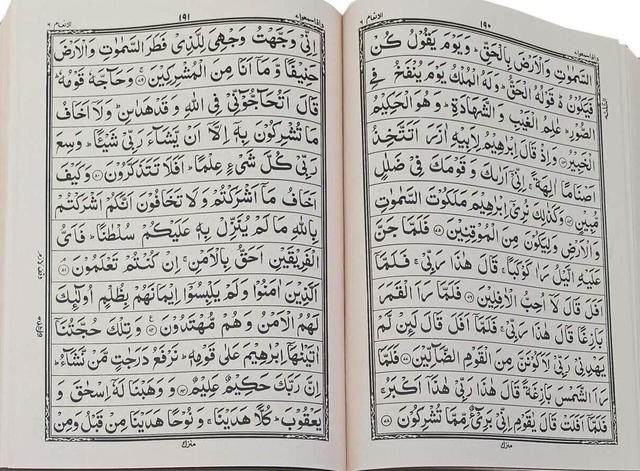 الانعام ٦
١٩٠
واذا سمعوا ٧
السَّمٰوٰتِ وَالْاَرْضَ بِالْحَقِّ ؕ وَيَوْمَ يَقُوْلُ كُنْ
فَيَكُوْنُ ؕ قَوْلُهُ الْحَقُّ ؕ وَلَهُ الْمُلْكُ يَوْمَ يُنْفَخُ فِي
الصُّوْرِ ؕ عٰلِمُ الْغَيْبِ وَالشَّهَادَةِ ؕ وَهُوَ الْحَكِيْمُ
الْخَبِيْرُ ۝ وَاِذْ قَالَ اِبْرٰهِيْمُ لِاَبِيْهِ اٰزَرَ اَتَتَّخِذُ
اَصْنَامًا اٰلِهَةً ۚ اِنِّيْۤ اَرٰىكَ وَ قَوْمَكَ فِيْ ضَلٰلٍ
مُّبِيْنٍ ۝ وَكَذٰلِكَ نُرِيْۤ اِبْرٰهِيْمَ مَلَكُوْتَ السَّمٰوٰتِ
وَ الْاَرْضِ وَلِيَكُوْنَ مِنَ الْمُوْقِنِيْنَ ۝ فَلَمَّا جَنَّ
عَلَيْهِ الَّيْلُ رَاٰ كَوْكَبًا ۚ قَالَ هٰذَا رَبِّيْ ۚ فَلَمَّاۤ
اَفَلَ قَالَ لَاۤ اُحِبُّ الْاٰفِلِيْنَ ۝ فَلَمَّا رَاَ الْقَمَرَ
بَازِغًا قَالَ هٰذَا رَبِّيْ ۚ فَلَمَّاۤ اَفَلَ قَالَ لَئِنْ لَّمْ
يَهْدِنِيْ رَبِّيْ لَاَكُوْنَنَّ مِنَ الْقَوْمِ الضَّآلِّيْنَ ۝ فَلَمَّا
رَاَ الشَّمْسَ بَازِغَةً قَالَ هٰذَا رَبِّيْ هٰذَاۤ اَكْبَرُ ۚ
فَلَمَّاۤ اَفَلَتْ قَالَ يٰقَوْمِ اِنِّيْ بَرِيْٓءٌ مِّمَّا تُشْرِكُوْنَ ۝
منزل
الانعام ٦
١٩١
واذا سمعوا ٧
اِنِّيْ وَجَّهْتُ وَجْهِيَ لِلَّذِيْ فَطَرَ السَّمٰوٰتِ وَالْاَرْضَ
حَنِيْفًا وَّ مَاۤ اَنَا مِنَ الْمُشْرِكِيْنَ ۝ وَحَآجَّهٗ قَوْمُهٗ ؕ
قَالَ اَتُحَآجُّوْٓنِّيْ فِي اللّٰهِ وَ قَدْ هَدٰىنِ ؕ وَلَاۤ اَخَافُ
مَا تُشْرِكُوْنَ بِهٖۤ اِلَّاۤ اَنْ يَّشَآءَ رَبِّيْ شَيْئًا ؕ وَسِعَ
رَبِّيْ كُلَّ شَيْءٍ عِلْمًا ؕ اَفَلَا تَتَذَكَّرُوْنَ ۝ وَكَيْفَ
اَخَافُ مَاۤ اَشْرَكْتُمْ وَ لَا تَخَافُوْنَ اَنَّكُمْ اَشْرَكْتُمْ
بِاللّٰهِ مَا لَمْ يُنَزِّلْ بِهٖ عَلَيْكُمْ سُلْطٰنًا ؕ فَاَيُّ
الْفَرِيْقَيْنِ اَحَقُّ بِالْاَمْنِ ۚ اِنْ كُنْتُمْ تَعْلَمُوْنَ ۝
اَلَّذِيْنَ اٰمَنُوْا وَلَمْ يَلْبِسُوْۤا اِيْمَانَهُمْ بِظُلْمٍ اُولٰٓئِكَ
لَهُمُ الْاَمْنُ وَ هُمْ مُّهْتَدُوْنَ ۝ وَ تِلْكَ حُجَّتُنَاۤ
اٰتَيْنٰهَاۤ اِبْرٰهِيْمَ عَلٰى قَوْمِهٖ ؕ نَرْفَعُ دَرَجٰتٍ مَّنْ نَّشَآءُ ؕ
اِنَّ رَبَّكَ حَكِيْمٌ عَلِيْمٌ ۝ وَ وَهَبْنَا لَهٗۤ اِسْحٰقَ وَ
يَعْقُوْبَ ؕ كُلًّا هَدَيْنَا ۚ وَ نُوْحًا هَدَيْنَا مِنْ قَبْلُ وَمِنْ
منزل